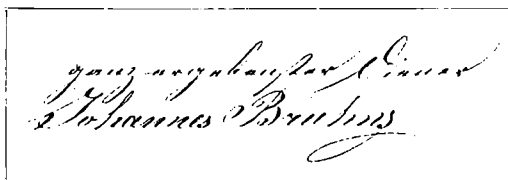 ganz ergebenster Diener
Johannes Bruhns